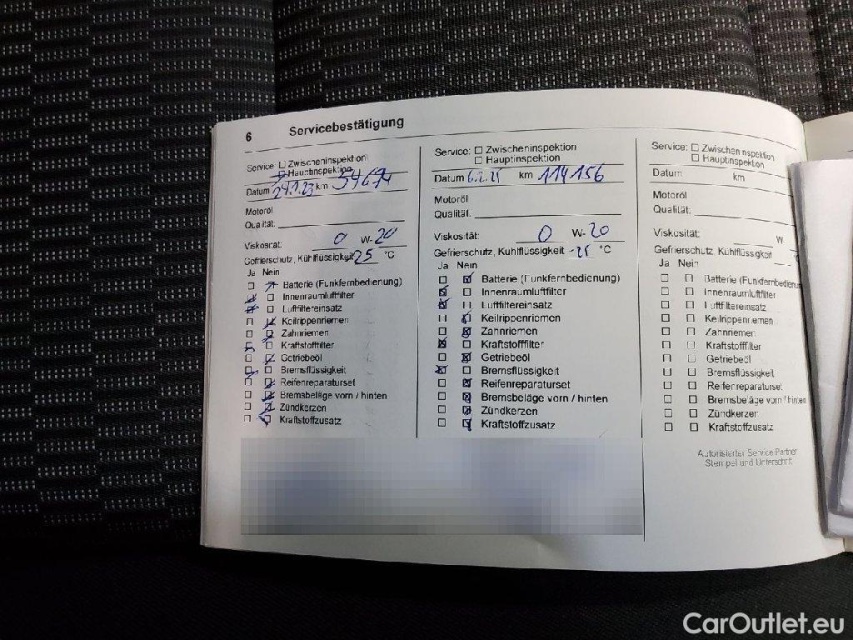 6 Servicebestätigung
Service: ☐ Zwischeninspektion
Hauptinspektion
Datum 24.1.23 km 54674
Motoröl
Qualität:
Viskosität: 0 W-20
Gefrierschutz, Kühlflüssigkeit -25 °C
Ja Nein
Batterie (Funkfernbedienung)
Innenraumluftfilter
Luftfiltereinsatz
Keilrippenriemen
Zahnriemen
Kraftstofffilter
Getriebeöl
Bremsflüssigkeit
Reifenreparaturset
Bremsbeläge vorn / hinten
Zündkerzen
Kraftstoffzusatz
Service: ☐ Zwischeninspektion
☐ Hauptinspektion
Datum 6.2.25 km 114156
Motoröl
Qualität:
Viskosität: 0 W-20
Gefrierschutz, Kühlflüssigkeit -25 °C
Ja Nein
Batterie (Funkfernbedienung)
Innenraumluftfilter
Luftfiltereinsatz
Keilrippenriemen
Zahnriemen
Kraftstofffilter
Getriebeöl
Bremsflüssigkeit
Reifenreparaturset
Bremsbeläge vorn / hinten
Zündkerzen
Kraftstoffzusatz
Service: ☐ Zwischeninspektion
☐ Hauptinspektion
Datum km
Motoröl
Qualität:
Viskosität: W
Gefrierschutz, Kühlflüssigkeit
Ja Nein
Batterie (Funkfernbedienun
Innenraumluftfilter
Luftfiltereinsatz
Keilrippenriemen
Zahnriemen
Kraftstofffilter
Getriebeöl
Bremsflüssigkeit
Reifenreparaturset
Bremsbeläge vorn / hinten
Zündkerzen
Kraftstoffzusatz
Autorisierter Service Partner
Stempel und Unterschrift
CarOutlet.eu